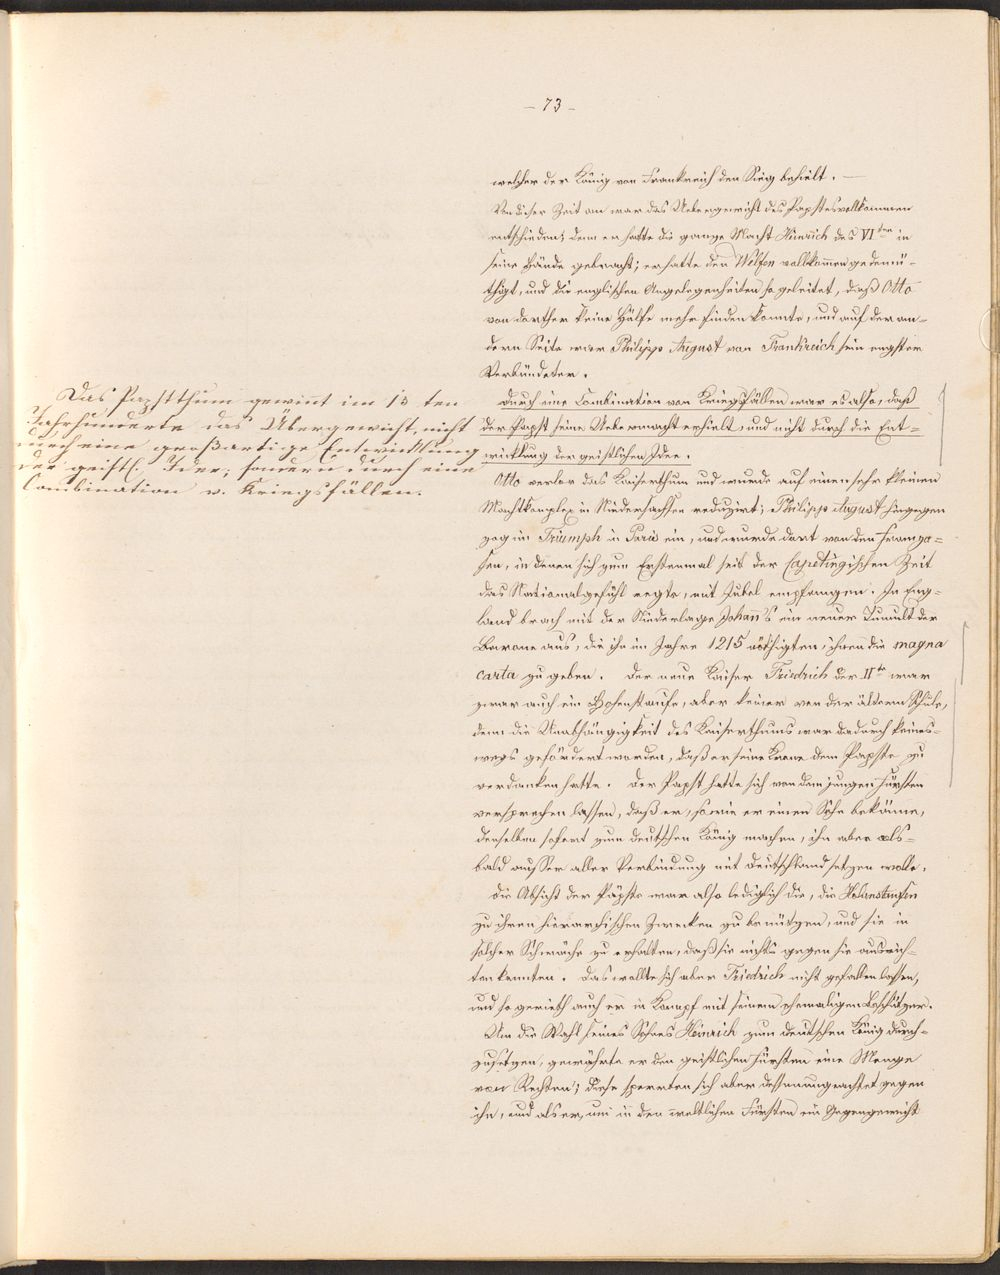 - 73 -
welcher der König von Frankreich den Sieg behielt. —
Von dieser Zeit an war das Uebergewicht des Papstes vollkommen
entschieden; denn er hatte die ganze Macht Heinrich des VI ten in
seine Hände gebracht; er hatte den Welfen vollkommen gedemü-
thigt, und die englischen Angelegenheiten so geleitet, daß Otto
von dorther keine Hülfe mehr finden konnte, und auf der an-
dern Seite war Philipp August von Frankreich sein engster
Verbündeter.
Das Papstthum gewinnt im 13 ten
Jahrhunderte das Übergewicht, nicht
durch eine großartige Entwicklung
der geistl. Idee; sondern durch eine
Combination v. Kriegsfällen.
Durch eine Combination von Kriegsfällen war es also, daß
der Papst seine Uebermacht erhielt, und nicht durch die Ent-
wicklung der geistlichen Idee.
Otto verlor das Kaiserthum und wurde auf einen sehr kleinen
Machtkomplex in Niedersachsen reduzirt; Philipp August hingegen
zog im Triumph in Paris ein, und wurde dort von den Franzo-
sen, in denen sich zum Erstenmal seit der Capetingischen Zeit
das Nationalgefühl regte, mit Jubel empfangen. In Eng-
land brach mit der Niederlage Johann's ein neuer Tumult der
Barone aus, die ihn im Jahre 1215 nöthigten, ihnen die magna
carta zu geben. Der neue Kaiser Friedrich der II te war
zwar auch ein Hohenstaufe, aber keiner von der ältern Schule,
denn die Unabhängigkeit des Kaiserthums war dadurch keines-
wegs gefördert worden, daß er seine Krone dem Papste zu
verdanken hatte. Der Papst hatte sich von dem jungen Fürsten
versprechen lassen, daß er, sowie er einen Sohn bekäme,
denselben sofort zum deutschen König machen, ihn aber als-
bald ausser aller Verbindung mit Deutschland setzen wolle.
Die Absicht der Päpste war also lediglich die, die Hohenstaufen
zu ihren hierarchischen Zwecken zu benützen, und sie in
solcher Schwäche zu erhalten, daß sie nichts gegen sie ausrich-
ten konnten. Das wollte sich aber Friedrich nicht gefallen lassen,
und so gerieth auch er in Kampf mit seinem ehemaligen Beschützer.
Um die Wahl seines Sohnes Heinrich zum deutschen König durch-
zusetzen, gewährte er den geistlichen Fürsten eine Menge
von Rechten; diese sperrten sich aber dessenungeachtet gegen
ihn, und als er, um in den weltlichen Fürsten ein Gegengewicht